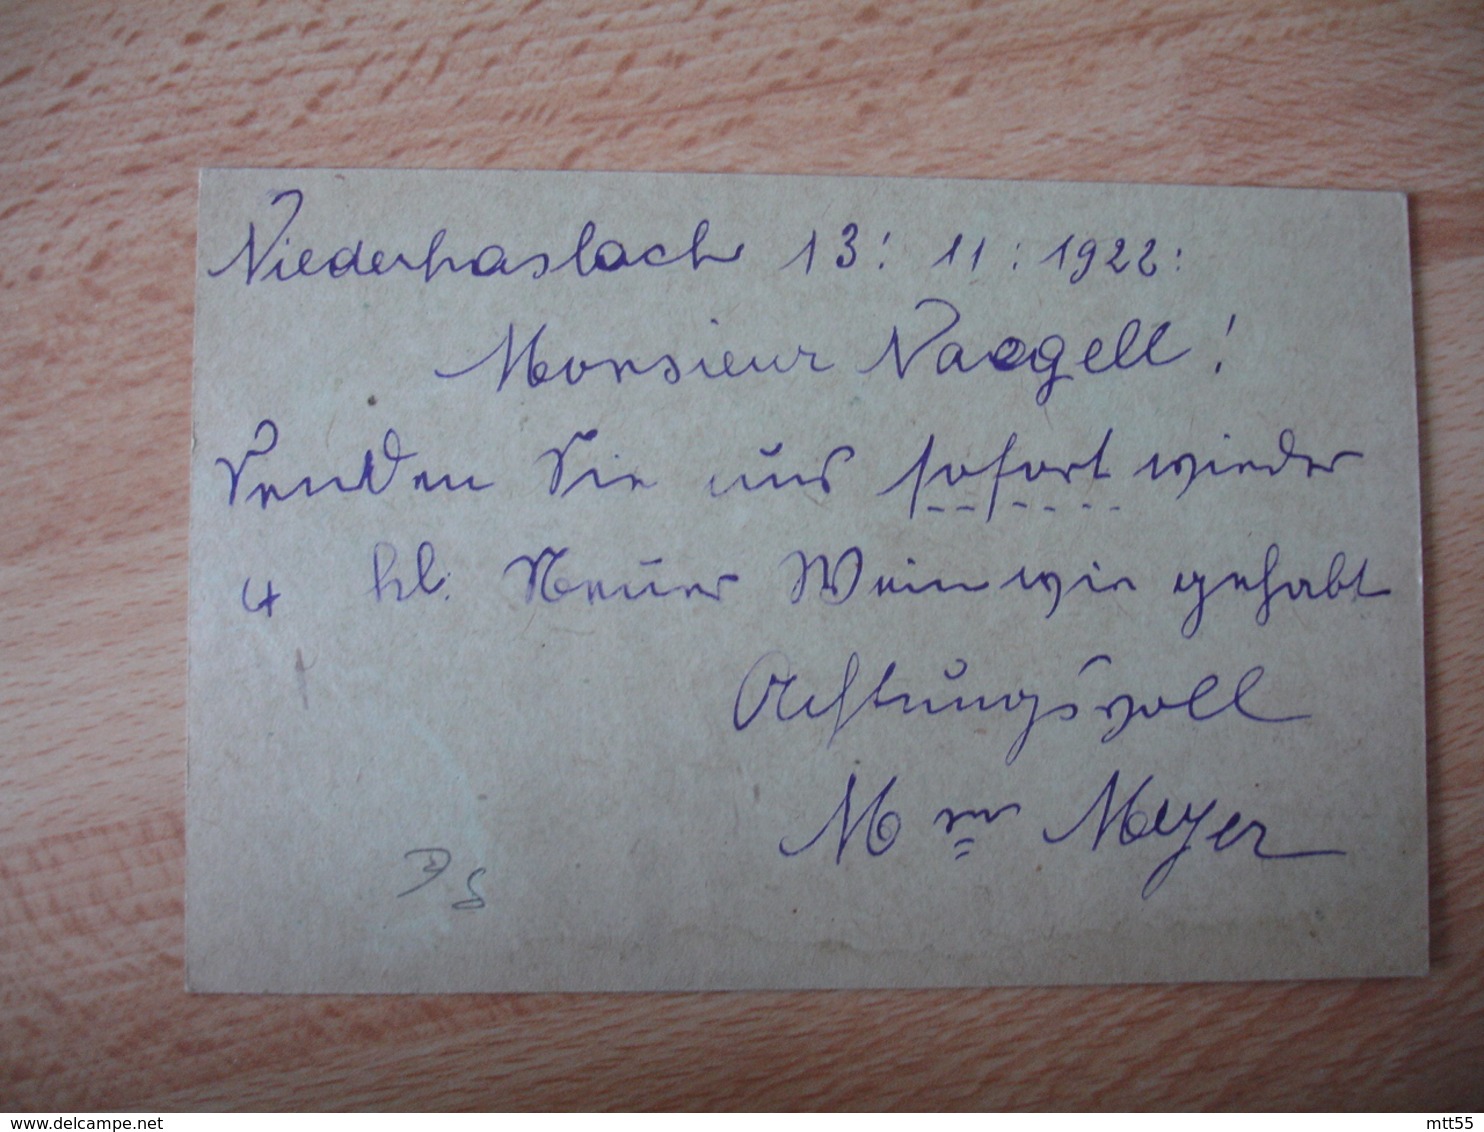 Niederhaslach 13. 11. 1922.
Monsieur Naegell!
Senden Sie uns sofort wieder
4 hl. Neuer Wein wie gehabt
Achtungsvoll
Meyer
delcampe.net
mtt55